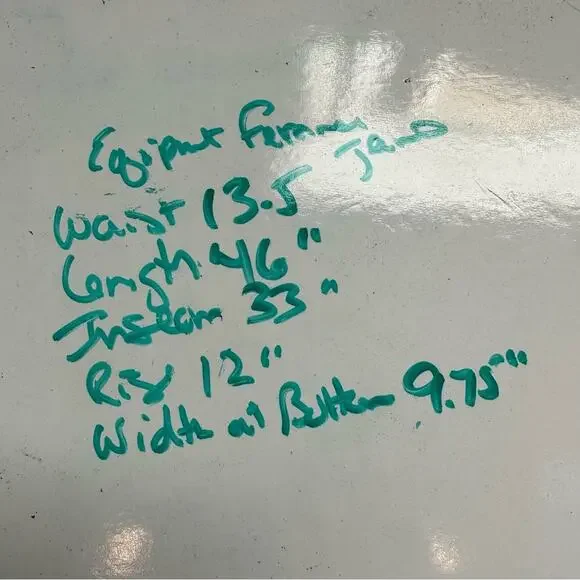 Equipmt Farmer Jams
Waist 13.5
Length 46"
Inseam 33"
Rise 12"
Width at Bottom 9.75"